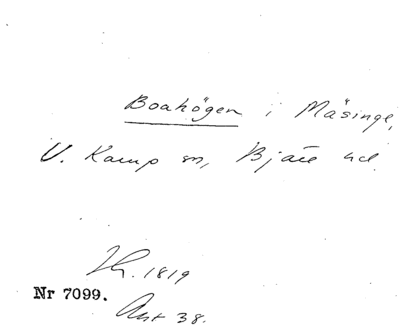 Boahögen i Mäsinge,
V. Karup sn, Bjäre hd.
Th. 1819
Nr 7099.
Ant 38.